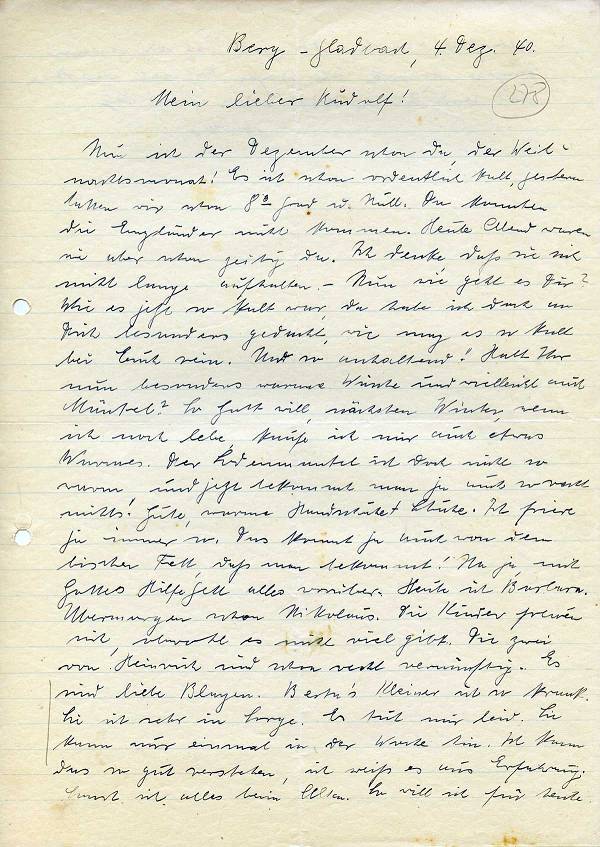 Berg-Gladbach, 4. Dez. 40.
278
Mein lieber Rudolf!
Nun ist der Dezember schon da, der Weih-
nachtsmonat! Es ist schon ordentlich kalt, gestern
hatten wir schon 8° Grad u. Null. Da konnten
die Engländer nicht kommen. Heute Abend waren
sie aber schon zeitig da. Ich denke daß sie sich
nicht lange aufhalten. – Nun wie geht es Dir?
Wie es jetzt so kalt war, da habe ich doch an
Dich besonders gedacht, wie mag es so kalt
bei Euch sein. Und so anhaltend! Habt Ihr
nun besonders warme Wäsche und vielleicht auch
Mäntel? So Gott will, nächsten Winter, wenn
ich noch lebe, kaufe ich mir auch etwas
Warmes. Der Lodenmantel ist doch nicht so
warm, und jetzt bekommt man ja auch so recht
nichts. Gute, warme Handschuhe Ich friere
ja immer so. Das kommt ja auch von dem
bischen Fett, daß man bekommt! Na ja, mit
Gottes Hilfe geht alles vorüber. Heute ist Barbara.
Übermorgen schon Nikolaus. Die Kinder freuen
sich, obwohl es nicht viel gibt. Die zwei
von Heinrich sind schon recht vernünftig. Es
sind liebe Blagen. Berta's Kleiner ist so krank.
Sie ist sehr in Sorge. Es tut mir leid. Sie
kann nur einmal in der Woche hin. Ich kann
das so gut verstehen, ich weiß es aus Erfahrung.
Sonst ist alles beim Alten. So will ich für heute